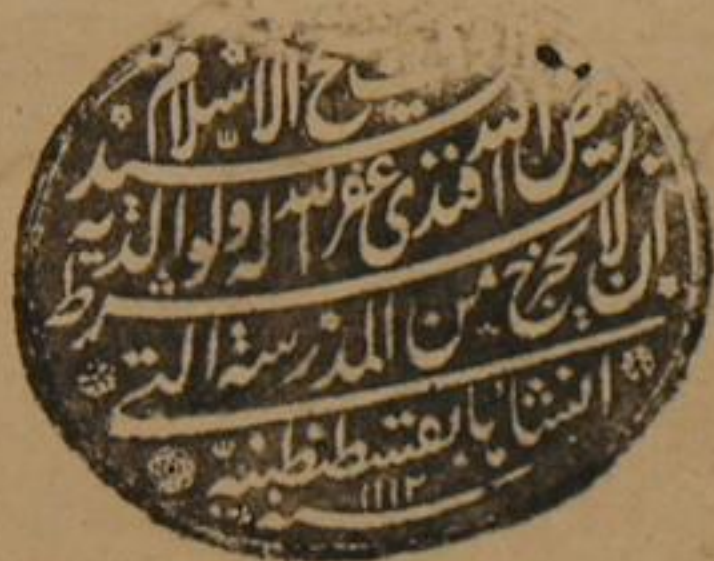 شيخ الاسلام
السيد
فيض الله افندى غفر الله له ولوالديه
بشرط
ان لا يخرج من المدرسة التى
انشاها بقسطنطنيه
سنه ١١١٢